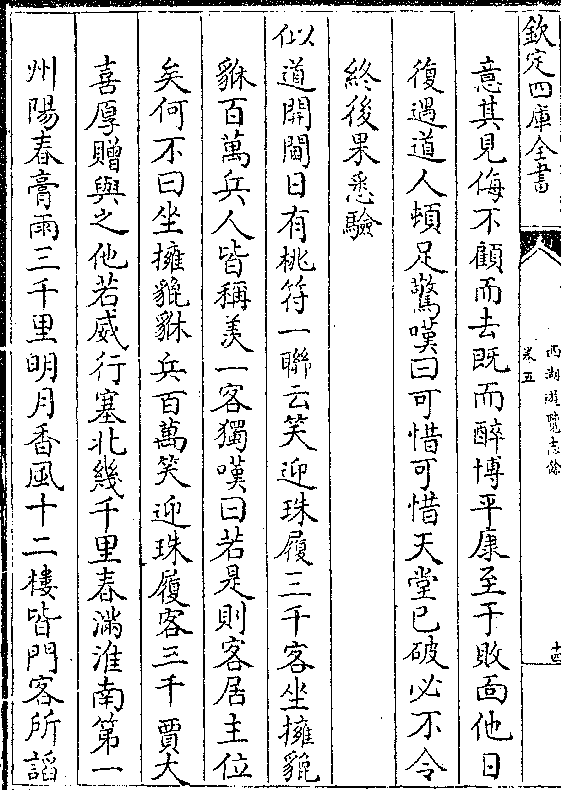 欽定四庫全書
西湖遊覽志餘
卷五
十四
意其見侮不顧而去既而醉博平康至于敗面他日
復遇道人頓足驚嘆曰可惜可惜天堂已破必不令
終後果悉驗
似道開閫日有桃符一聯云笑迎珠履三千客坐擁貔
貅百萬兵人皆稱羨一客獨嘆曰若是則客居主位
矣何不曰坐擁貔貅兵百萬笑迎珠履客三千賈大
喜厚贈與之他若威行塞北幾千里春滿淮南第一
州陽春膏雨三千里明月香風十二樓皆門客所謟